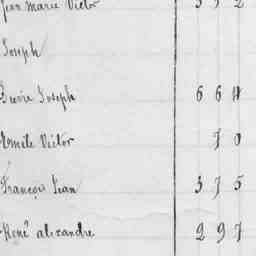 Jean Marie Victor 3 9 2
Joseph
Pierre Joseph 6 6 4
Emile Victor 7 0
François Jean 3 7 5
René alexandre 2 9 7